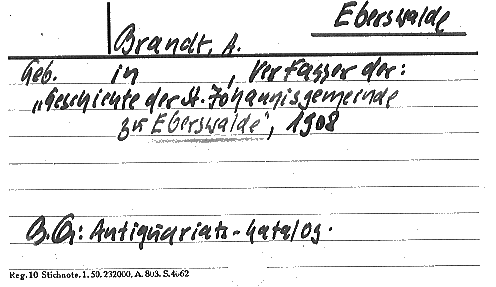 Eberswalde
Brandt, A.
Geb. in , Verfasser der:
„Geschichte der St. Johannisgemeinde
zu Eberswalde", 1908
B.Qu: Antiquariats-Katalog.
Reg. 10 Stichnote. 1. 50. 232000. A. 803. S. 4662